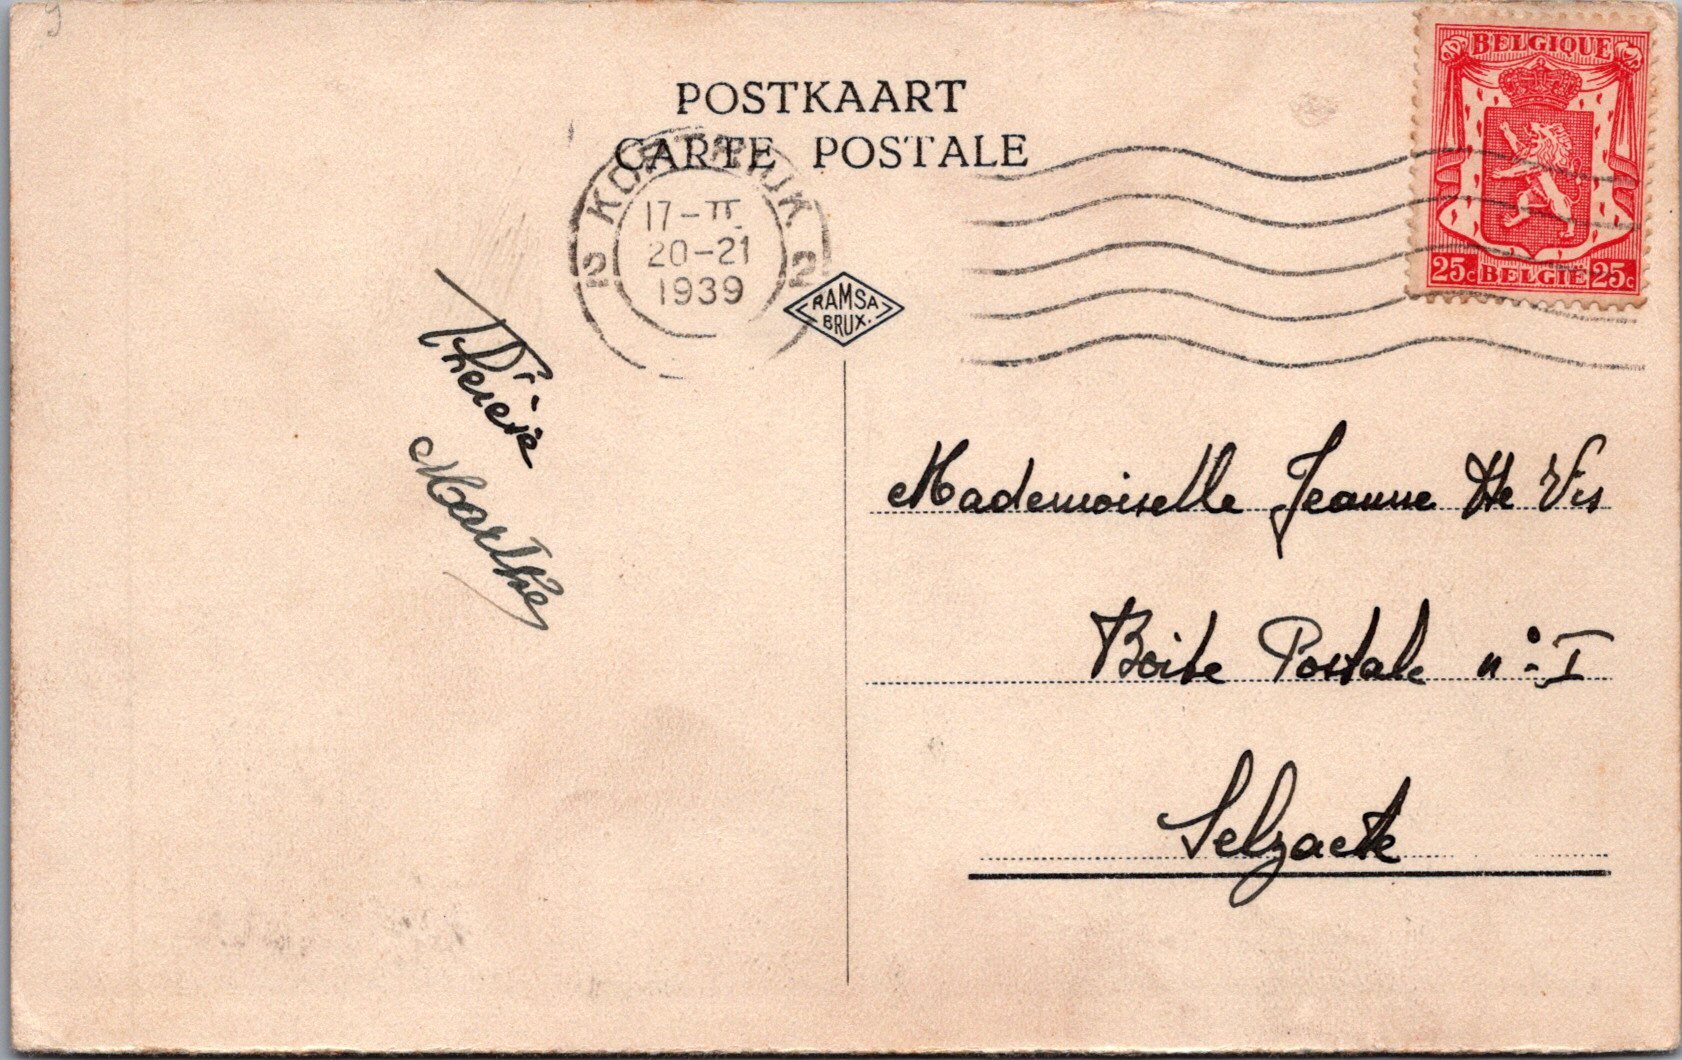 POSTKAART
CARTE POSTALE
KORTRIJK
2 2
17-II
20-21
1939
RAMSA
BRUX.
BELGIQUE
25c BELGIE 25c
Thérèse
Marthe
Mademoiselle Jeanne De Vis
Boite Postale n° I
Selzaete